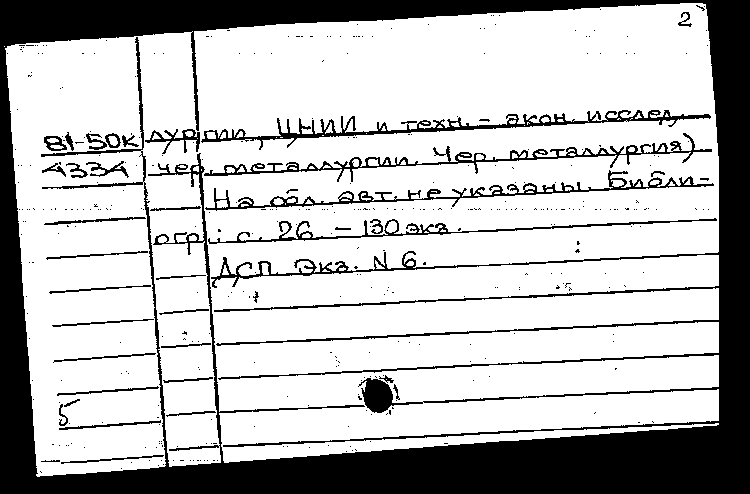 2
81-50к лургии, ЦНИИ и техн.-экон. исслед.
4334 чер. металлургии. Чер. металлургия)
На обл. авт. не указаны. Библи-
огр.: с. 26 – 130 экз.
ДСП Экз. N 6.
5